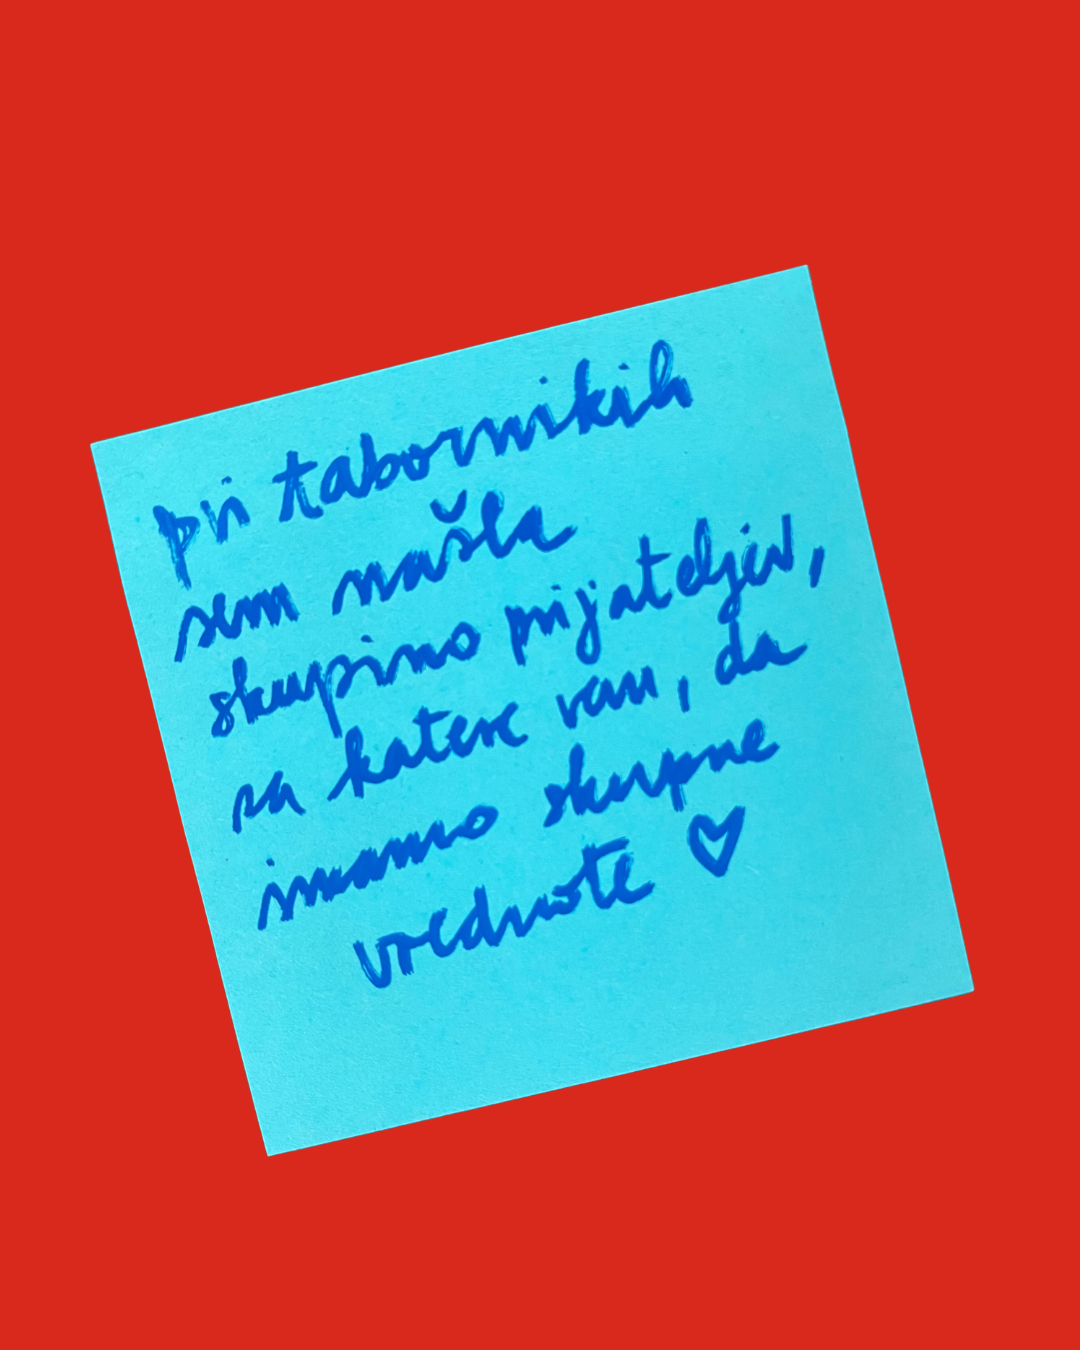 pri tabornikih
sem našla
skupino prijateljev,
za katere vem, da
imamo skupne
vrednote ♡